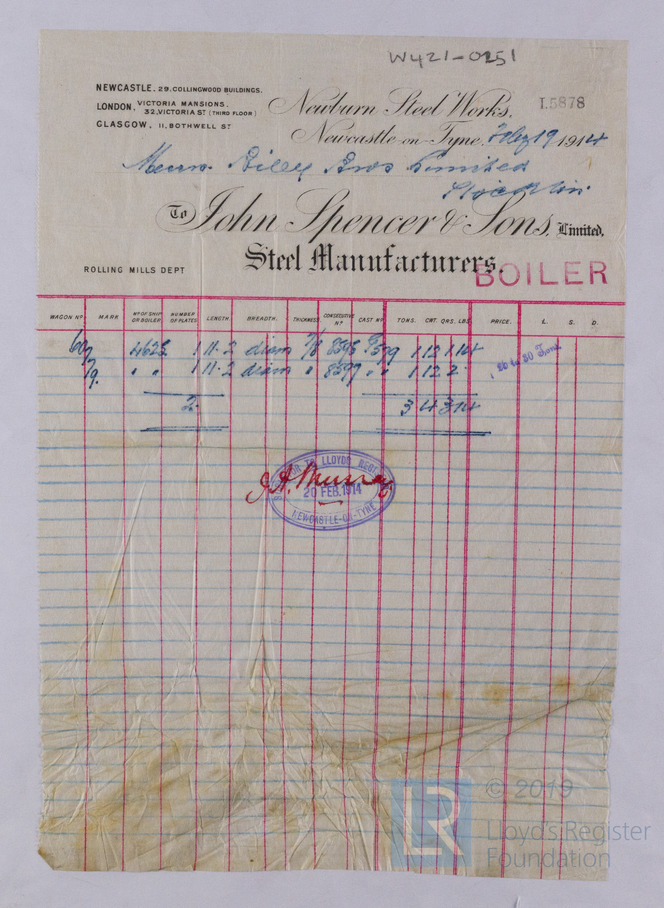 W421-0251
NEWCASTLE, 29, COLLINGWOOD BUILDINGS.
LONDON, VICTORIA MANSIONS, 32, VICTORIA ST (THIRD FLOOR)
GLASGOW, 11, BOTHWELL ST
Newburn Steel Works,
L5878
Newcastle-on-Tyne, Feby 19 1914
Messrs Riley Bros Limited
Stockton
To John Spencer & Sons, Limited,
Steel Manufacturers.
ROLLING MILLS DEPT
BOILER
WAGON No MARK No OF SHIP OR BOILER NUMBER OF PLATES LENGTH. BREADTH. THICKNESS CONSECUTIVE No CAST No TONS. CWT. QRS. LBS. PRICE. L. S. D.
4623 1 11.2 diam 7/8 1 12 1 14
" " 1 11.2 diam " 8597 1 12 2
20 to 30 Tons.
2 3 4 3 14
SURVEYOR TO LLOYDS REGISTER
J. A. Murray
20 FEB. 1914
NEWCASTLE-ON-TYNE
© 2019
LR
Lloyd's Register
Foundation